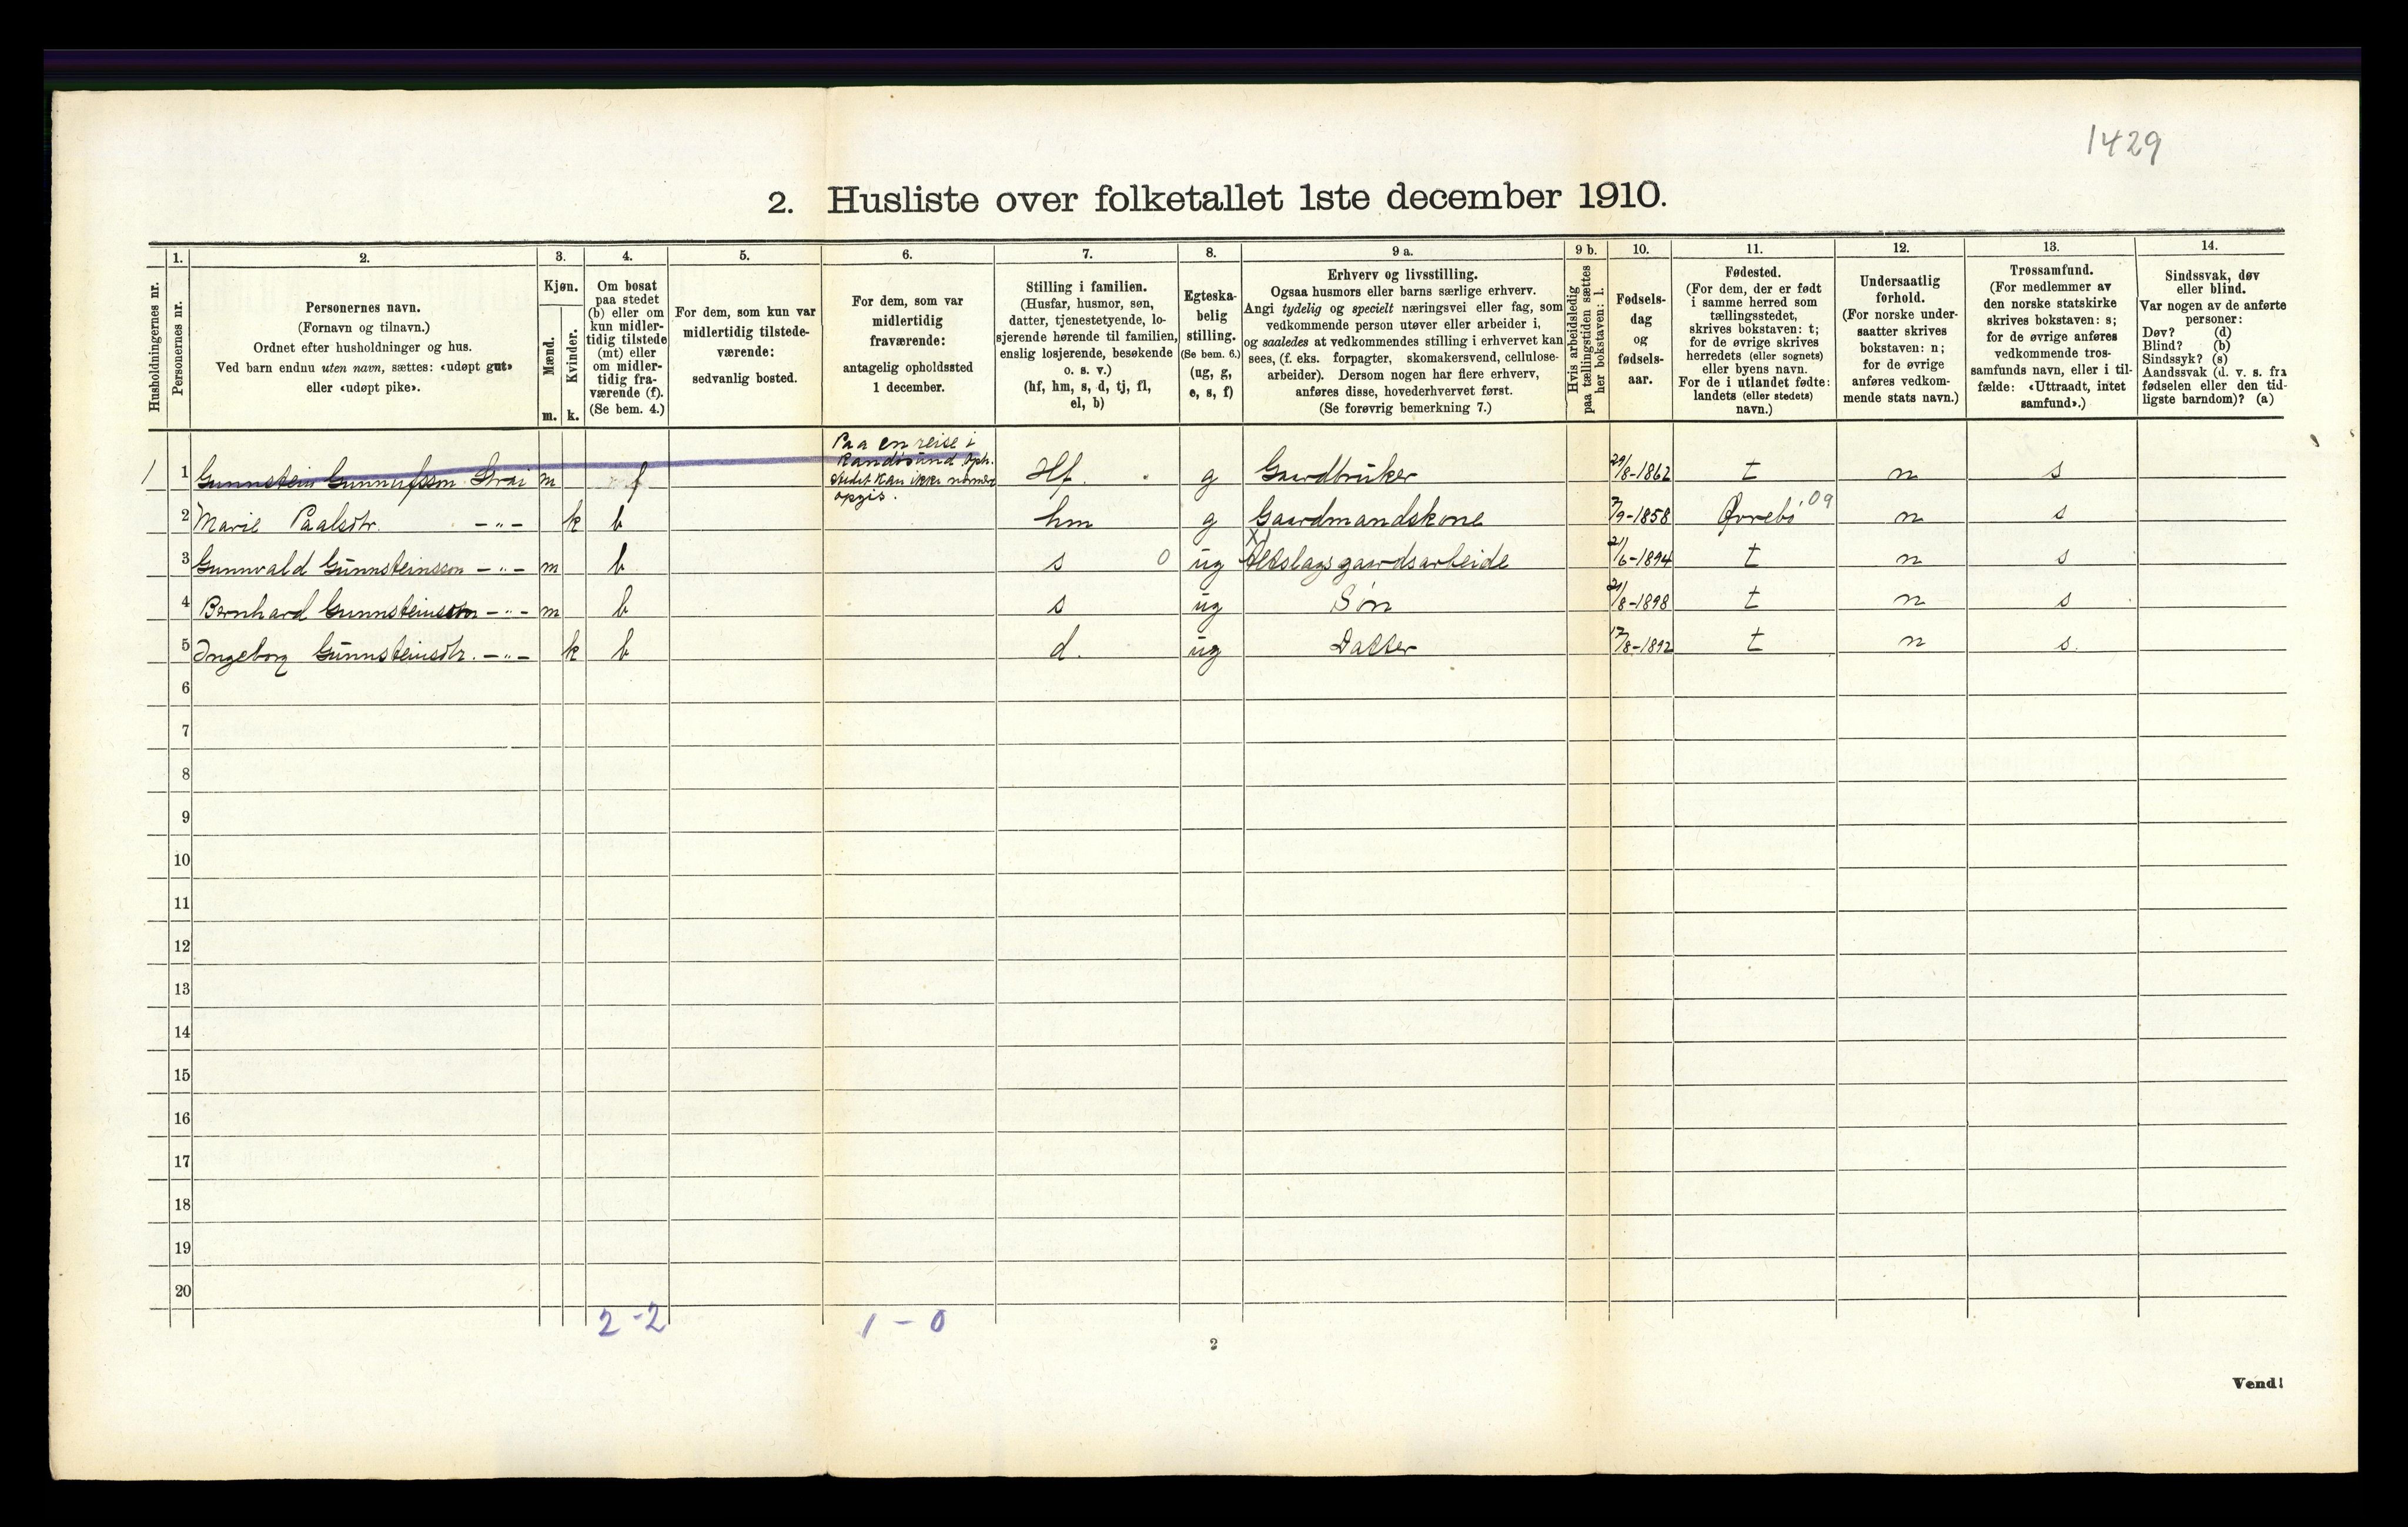 1429
2. Husliste over folketallet 1ste december 1910.
Husholdningernes nr.
1.
Personernes nr.
2.
Personernes navn.
(Fornavn og tilnavn.)
Ordnet efter husholdninger og hus.
Ved barn endnu uten navn, sættes: «udøpt gut»
eller «udøpt pike».
3.
Kjøn.
Mænd.
m.
Kvinder.
k.
4.
Om bosat
paa stedet
(b) eller om
kun midler-
tidig tilstede
(mt) eller
om midler-
tidig fra-
værende (f).
(Se bem. 4.)
5.
For dem, som kun var
midlertidig tilstede-
værende:
sedvanlig bosted.
6.
For dem, som var
midlertidig
fraværende:
antagelig opholdssted
1 december.
7.
Stilling i familien.
(Husfar, husmor, søn,
datter, tjenestetyende, lo-
sjerende hørende til familien,
enslig losjerende, besøkende
o. s. v.)
(hf, hm, s, d, tj, fl,
el, b)
8.
Egteska-
belig
stilling.
(Se bem. 6.)
(ug, g,
e, s, f)
9 a.
Erhverv og livsstilling.
Ogsaa husmors eller barns særlige erhverv.
Angi tydelig og specielt næringsvei eller fag, som
vedkommende person utøver eller arbeider i,
og saaledes at vedkommendes stilling i erhvervet kan
sees, (f. eks. forpagter, skomakersvend, cellulose-
arbeider). Dersom nogen har flere erhverv,
anføres disse, hovederhvervet først.
(Se forøvrig bemerkning 7.)
9 b.
Hvis arbeidsledig
paa tællingstiden sættes
her bokstaven: l.
10.
Fødsels-
dag
og
fødsels-
aar.
11.
Fødested.
(For dem, der er født
i samme herred som
tællingsstedet,
skrives bokstaven: t;
for de øvrige skrives
herredets (eller sognets)
eller byens navn.
For de i utlandet fødte:
landets (eller stedets)
navn.)
12.
Undersaatlig
forhold.
(For norske under-
saatter skrives
bokstaven: n;
for de øvrige
anføres vedkom-
mende stats navn.)
13.
Trossamfund.
(For medlemmer av
den norske statskirke
skrives bokstaven: s;
for de øvrige anføres
vedkommende tros-
samfunds navn, eller i til-
fælde: «Uttraadt, intet
samfund».)
14.
Sindssvak, døv
eller blind.
Var nogen av de anførte
personer:
Døv? (d)
Blind? (b)
Sindssyk? (s)
Aandssvak (d. v. s. fra
fødselen eller den tid-
ligste barndom)? (a)
Paa en reise i
Randøsund Oph.
stedet kan ikke nærmere
opgis.
1 1 Gunnstein Gunnulfsson Strai m f Hf. g Gaardbruker 29/8-1862 t n s
2 Marie Paalsdtr. -"- k b hm g Gaardmandskone 7/9-1858 Øvrebø 09 n s
3 Gunnvald Gunnsteinsson -"- m b s 0 ug Altslags gaardsarbeide 21/6-1894 t n s
4 Bernhard Gunnsteinsson -"- m b s ug Søn 21/8-1898 t n s
5 Ingeborg Gunnsteinsdtr. -"- k b d. ug Datter 17/8-1892 t n s.
6
7
8
9
10
11
12
13
14
15
16
17
18
19
20
2 - 2 1 - 0
2
Vend!